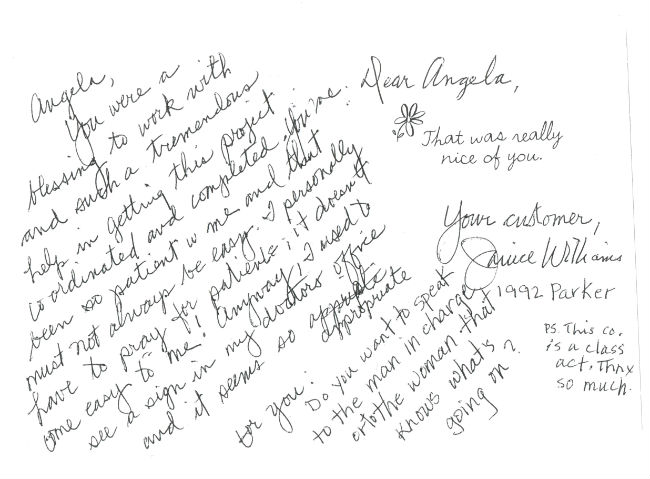 Angela,
You were a
blessing to work with
and such a tremendous
help in getting this project
coordinated and completed. You've
been so patient w me and that
must not always be easy. I personally
have to pray for patience; it doesn't
come easy to me! Anyway, I used to
see a sign in my doctors office
and it seems so
appropriate
for you.
Do you want to speak
to the man in charge
or to the woman that
knows what's
going on?
Dear Angela,
That was really
nice of you.
Your customer,
Janice Williams
1992 Parker
PS. This co.
is a class
act. Thnx
so much.